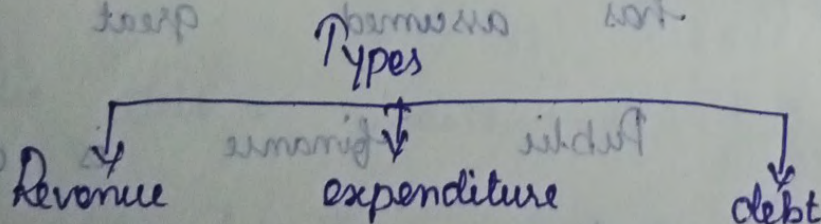 Types
Revenue expenditure debt